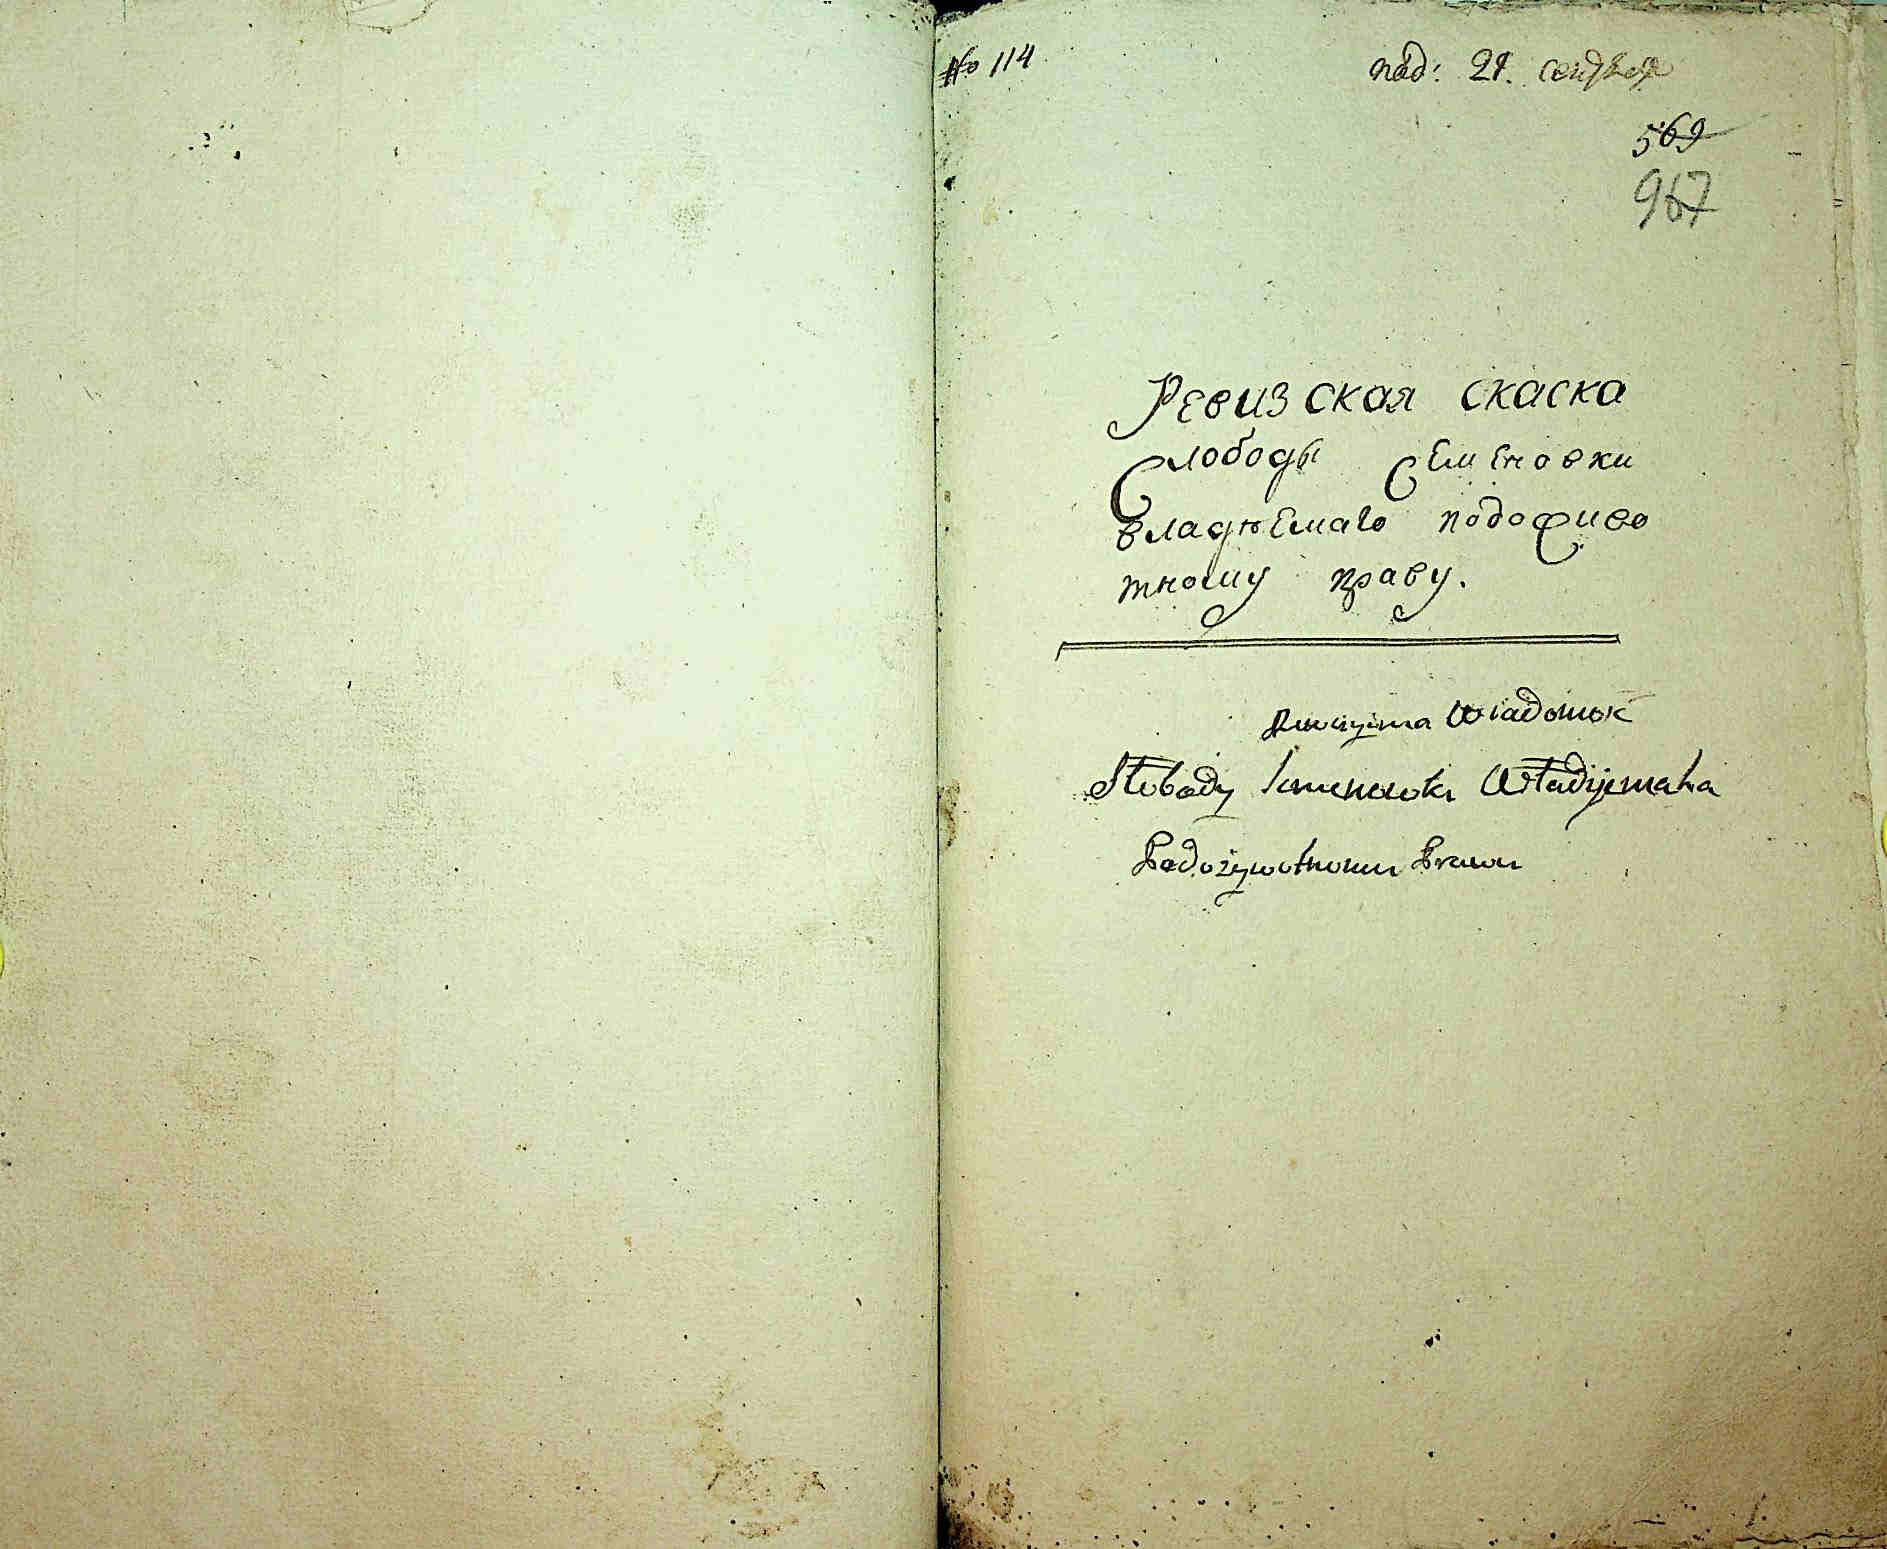 № 114
под: 21. сентября
569
967
Ревизская скаска
Слободы Семеновки
владѣемаго подоживо
тному праву.
Wiadomosc
Słobody Semenowki Władijemaha
Podożywotnomu Prawu